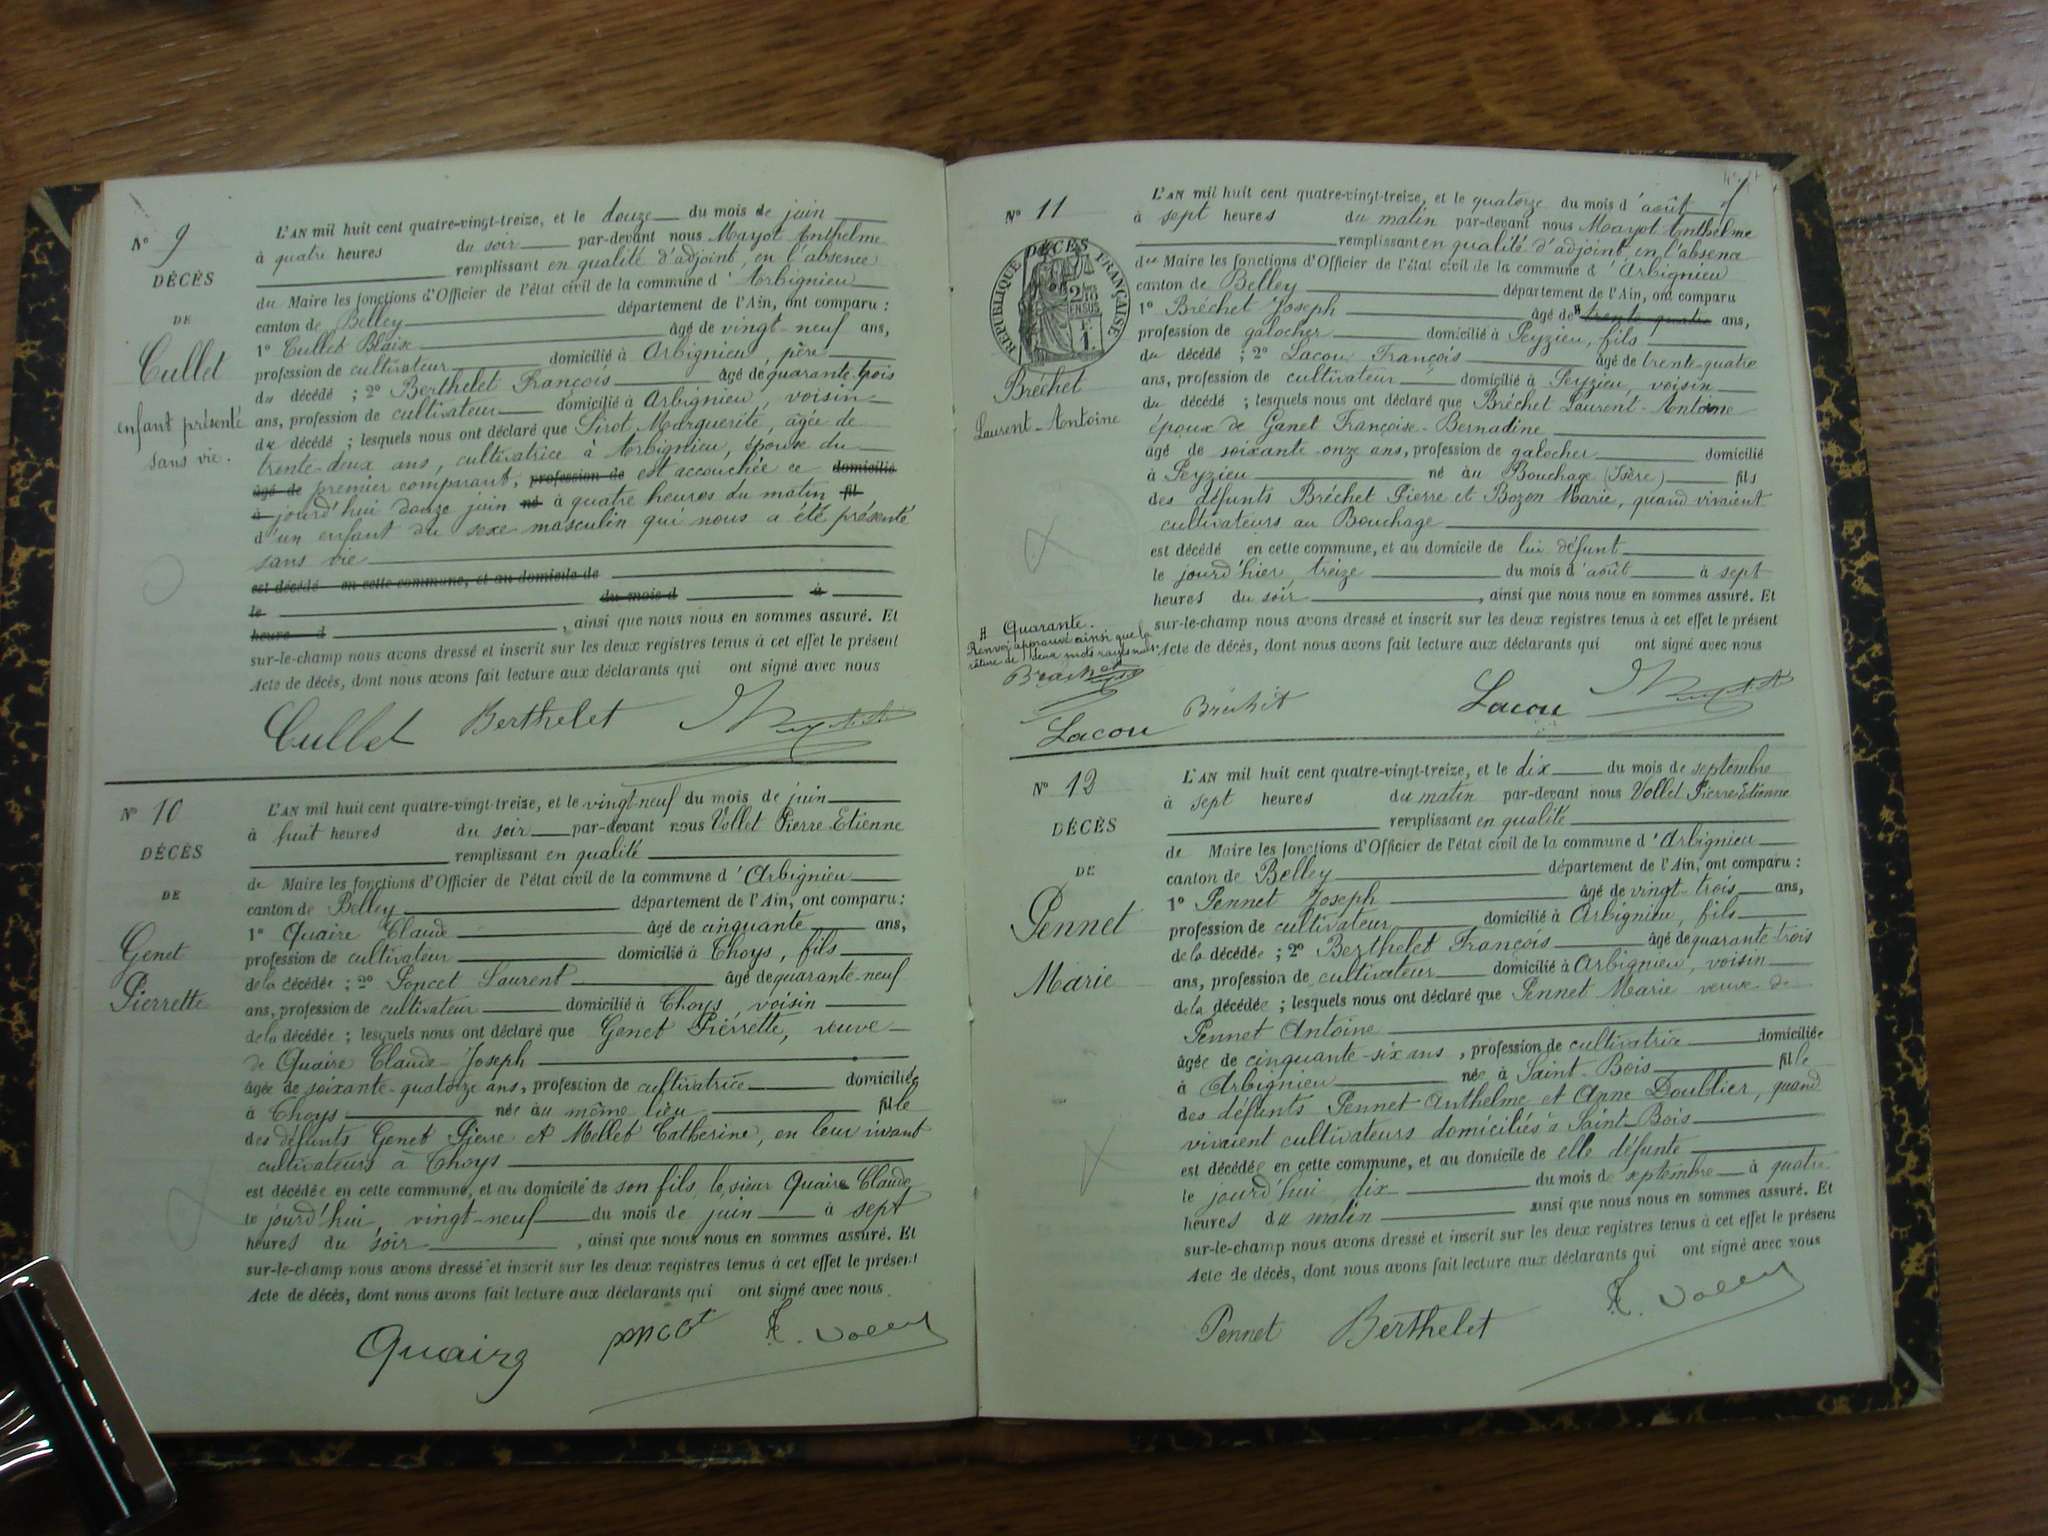 N° 9
DÉCÈS
DE
Cullet
enfant présenté
sans vie.
L'AN mil huit cent quatre-vingt-treize, et le douze du mois de juin
à quatre heures du soir par-devant nous Mayot Anthelme
remplissant en qualité d'adjoint, en l'absence
du Maire les fonctions d'Officier de l'état civil de la commune d'Arbignieu
canton de Belley département de l'Ain, ont comparu :
1° Cullet Blaise âgé de vingt-neuf ans,
profession de cultivateur domicilié à Arbignieu, père
du décédé ; 2° Berthelet François âgé de quarante-trois
ans, profession de cultivateur domicilié à Arbignieu, voisin
du décédé ; lesquels nous ont déclaré que Sirot Marguerite, âgée de
trente-deux ans, cultivatrice à Arbignieu, épouse du
âgé de premier comparant, profession de est accouchée ce domicilié
à jourd'hui douze juin né à quatre heures du matin fil
d'un enfant du sexe masculin qui nous a été présenté
sans vie
est décédé en cette commune, et au domicile de
le du mois d à
heure d , ainsi que nous nous en sommes assuré. Et
sur-le-champ nous avons dressé et inscrit sur les deux registres tenus à cet effet le présent
Acte de décès, dont nous avons fait lecture aux déclarants qui ont signé avec nous
Cullet Berthelet
N° 10
DÉCÈS
DE
Genet
Pierrette
L'AN mil huit cent quatre-vingt-treize, et le vingt-neuf du mois de juin
à huit heures du soir par-devant nous Vollet Pierre Etienne
remplissant en qualité
de Maire les fonctions d'Officier de l'état civil de la commune d'Arbignieu
canton de Belley département de l'Ain, ont comparu :
1° Quaire Claude âgé de cinquante ans,
profession de cultivateur domicilié à Thoys, fils
de la décédée ; 2° Poncet Laurent âgé de quarante-neuf
ans, profession de cultivateur domicilié à Thoys, voisin
de la décédée ; lesquels nous ont déclaré que Genet Pierrette, veuve
de Quaire Claude Joseph
âgée de soixante-quatorze ans, profession de cultivatrice domiciliée
à Thoys née au même lieu fille
des défunts Genet Pierre et Mellet Catherine, en leur vivant
cultivateurs à Thoys
est décédée en cette commune, et au domicile de son fils, le sieur Quaire Claude
le jourd'hui, vingt-neuf du mois de juin à sept
heures du soir , ainsi que nous nous en sommes assuré. Et
sur-le-champ nous avons dressé et inscrit sur les deux registres tenus à cet effet le présent
Acte de décès, dont nous avons fait lecture aux déclarants qui ont signé avec nous.
Quaire
N° 11
DÉCÈS
RÉPUBLIQUE FRANÇAISE
Bréchet
Laurent-Antoine
L'AN mil huit cent quatre-vingt-treize, et le quatorze du mois d'août
à sept heures du matin par-devant nous Mayot Anthelme
remplissant en qualité d'adjoint, en l'absence
du Maire les fonctions d'Officier de l'état civil de la commune d'Arbignieu
canton de Belley département de l'Ain, ont comparu
1° Bréchet Joseph âgé de trente-quatre ans,
profession de galocher domicilié à Peyzieu, fils
du décédé ; 2° Lacou François âgé de trente-quatre
ans, profession de cultivateur domicilié à Peyzieu, voisin
du décédé ; lesquels nous ont déclaré que Bréchet Laurent-Antoine
époux de Ganet Françoise-Bernadine
âgé de soixante-onze ans, profession de galocher domicilié
à Peyzieu né au Bouchage (Isère) fils
des défunts Bréchet Pierre et Bozon Marie, quand vivaient
cultivateurs au Bouchage
est décédé en cette commune, et au domicile de lui défunt
le jourd'hier, treize du mois d'août à sept
heures du soir , ainsi que nous nous en sommes assuré. Et
sur-le-champ nous avons dressé et inscrit sur les deux registres tenus à cet effet le présent
Acte de décès, dont nous avons fait lecture aux déclarants qui ont signé avec nous
Quarante.
Renvoi approuvé ainsi que la
rature de deux mots rayés nuls.
Lacou Bréchet Lacou
N° 12
DÉCÈS
DE
Pennet
Marie
L'AN mil huit cent quatre-vingt-treize, et le dix du mois de septembre
à sept heures du matin par-devant nous Vollet Pierre Etienne
remplissant en qualité
de Maire les fonctions d'Officier de l'état civil de la commune d'Arbignieu
canton de Belley département de l'Ain, ont comparu :
1° Pennet Joseph âgé de vingt-trois ans,
profession de cultivateur domicilié à Arbignieu, fils
de la décédée ; 2° Berthelet François âgé de quarante-trois
ans, profession de cultivateur domicilié à Arbignieu, voisin
de la décédée ; lesquels nous ont déclaré que Pennet Marie veuve de
Pennet Antoine
âgée de cinquante-six ans, profession de cultivatrice domiciliée
à Arbignieu née à Saint-Bois fille
des défunts Pennet Anthelme et Anne Doublier, quand
vivaient cultivateurs domiciliés à Saint-Bois
est décédée en cette commune, et au domicile de elle défunte
le jourd'hui, dix du mois de septembre à quatre
heures du matin ainsi que nous nous en sommes assuré. Et
sur-le-champ nous avons dressé et inscrit sur les deux registres tenus à cet effet le présent
Acte de décès, dont nous avons fait lecture aux déclarants qui ont signé avec nous
Pennet Berthelet